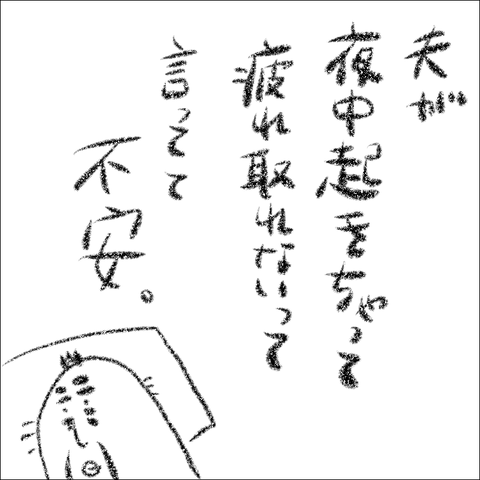 夫が
夜中起きちゃって
疲れ取れないって
言ってて
不安。